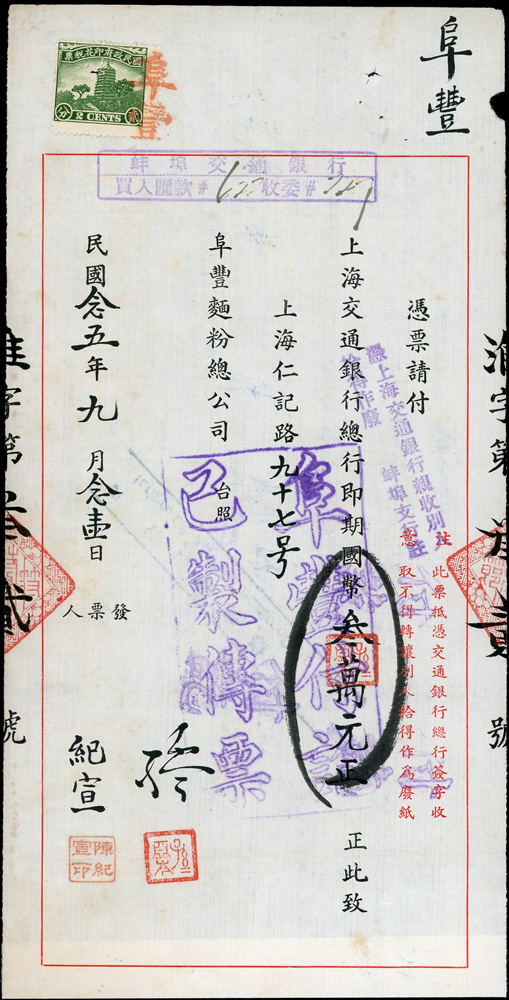 阜豐
國民政府印花稅票
2 CENTS
貳
分
阜豐
蚌埠交通銀行
買入匯款# 收委#
憑票請付
上海交通銀行總行即期國幣叁萬元正
正此致
上海仁記路九十七号
阜豐麵粉總公司
台照
民國念五年九月念壹日
發票人
紀宣
陳紀宣印
憑上海交通銀行親收別
拾得作廢
蚌埠支行註
注意
此票祗憑交通銀行總行簽字收
取不得轉讓別人拾得作為廢紙
已製傳票
淮字第
號
淮字第叁貳
號